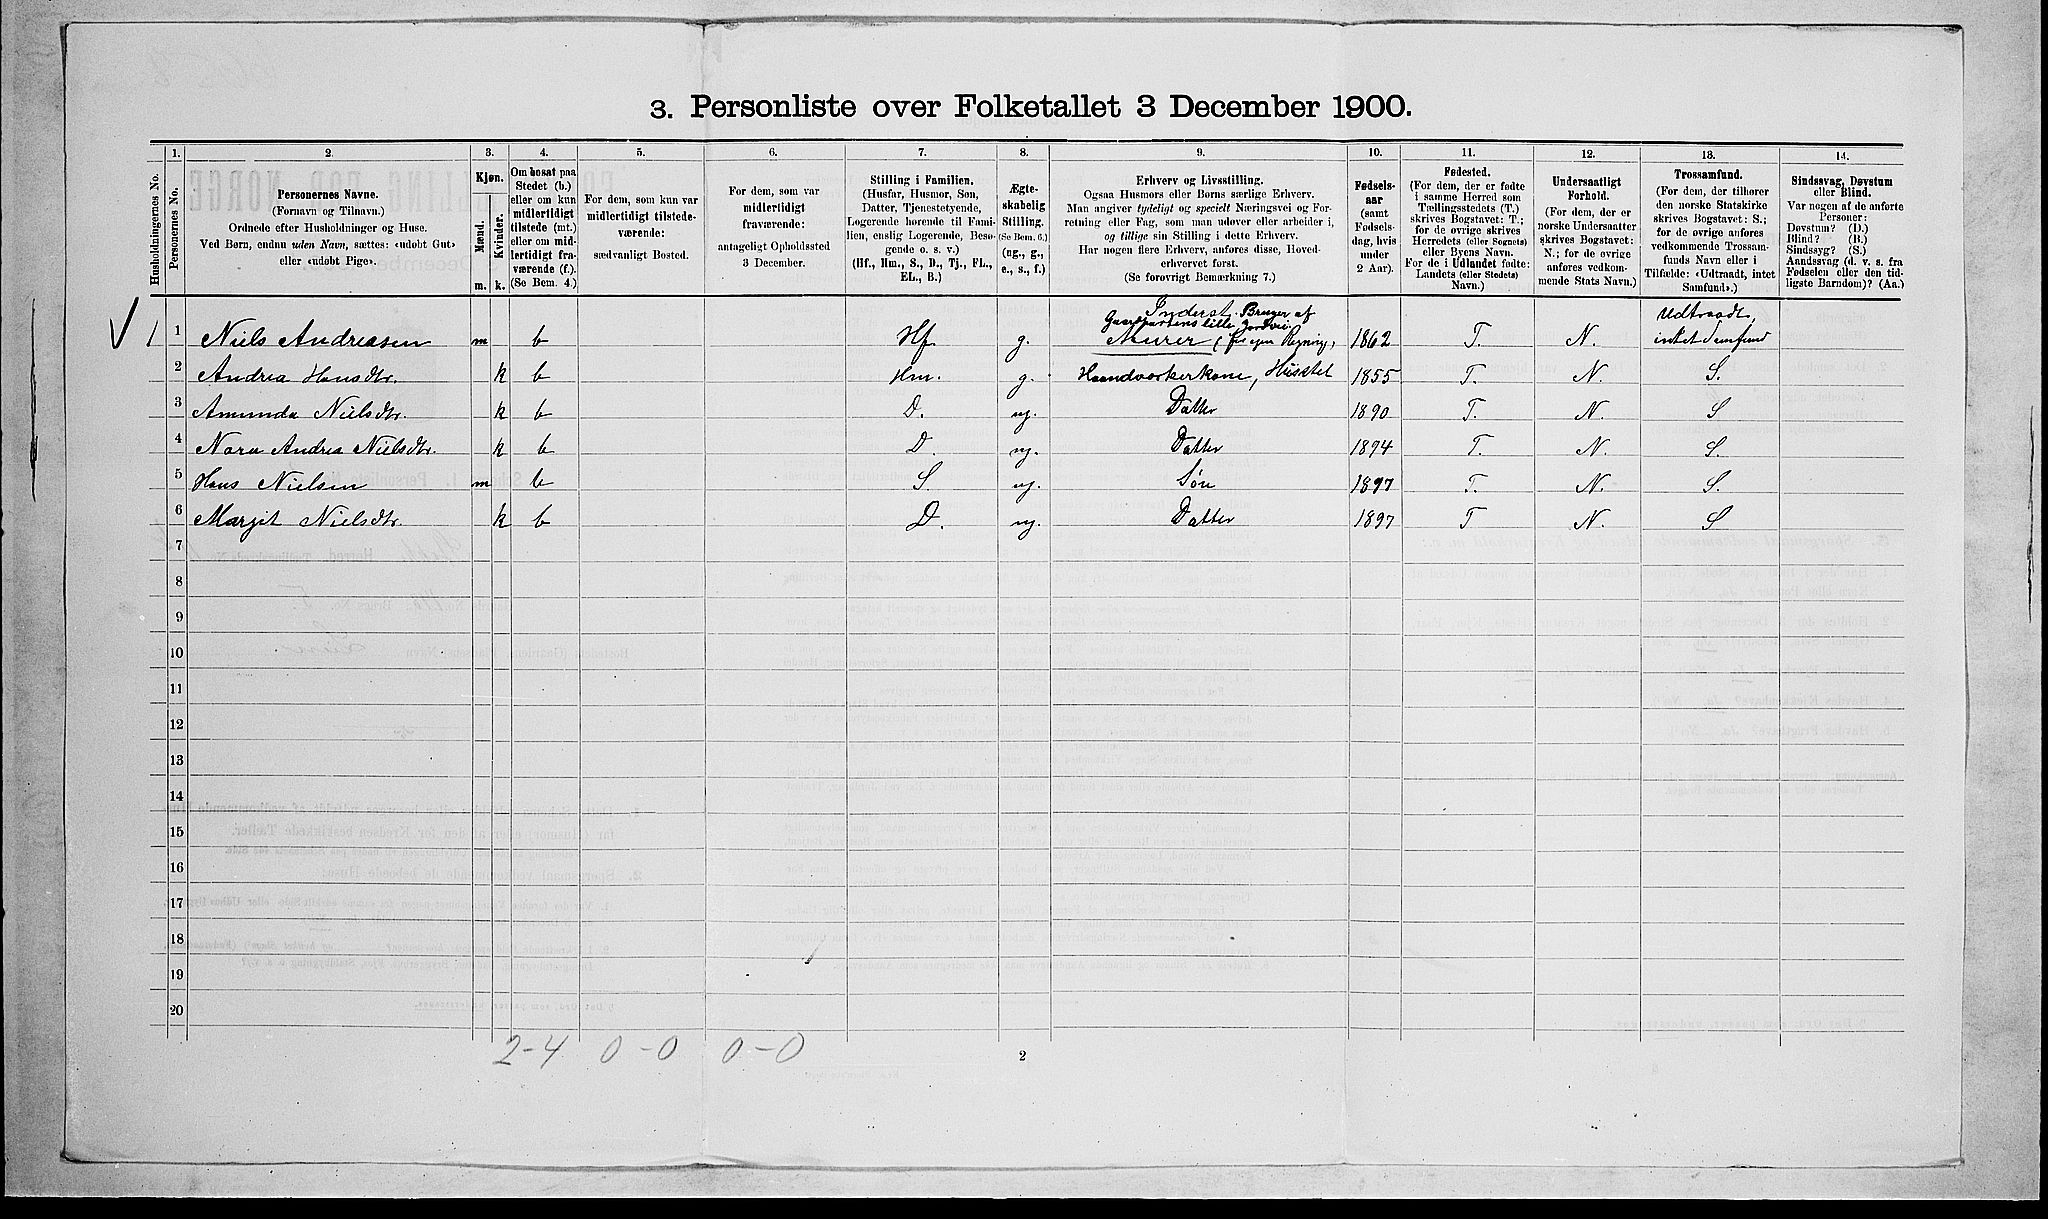 3. Personliste over Folketallet 3 December 1900.
Husholdningernes No.
1.
Personernes No.
2.
Personernes Navne.
(Fornavn og Tilnavn.)
Ordnede efter Husholdninger og Huse.
Ved Børn, endnu uden Navn, sættes: «udøbt Gut»
eller «udøbt Pige».
3.
Kjøn.
Mænd.
Kvinder.
m.
k.
4.
Om bosat paa
Stedet (b.)
eller om kun
midlertidigt
tilstede (mt.)
eller om mid-
lertidigt fra-
værende (f.).
(Se Bem. 4.)
5.
For dem, som kun var
midlertidigt tilstede-
værende:
sædvanligt Bosted.
6.
For dem, som var
midlertidigt
fraværende:
antageligt Opholdssted
3 December.
7.
Stilling i Familien.
(Husfar, Husmor, Søn,
Datter, Tjenestetyende,
Logerende hørende til Fami-
lien, enslig Logerende, Besø-
gende o. s. v.)
(Hf., Hm., S., D., Tj., FL.,
EL., B.)
8.
Ægte-
skabelig
Stilling.
(Se Bem. 6.)
(ug., g.,
e., s., f.)
9.
Erhverv og Livsstilling.
Ogsaa Husmors eller Børns særlige Erhverv.
Man angiver tydeligt og specielt Næringsvei og For-
retning eller Fag, som man udøver eller arbeider i,
og tillige sin Stilling i dette Erhverv.
Har nogen flere Erhverv, anføres disse, Hoved-
erhvervet først.
(Se forøvrigt Bemærkning 7.)
10.
Fødsels-
aar
(samt
Fødsels-
dag, hvis
under
2 Aar).
11.
Fødested.
(For dem, der er fødte
i samme Herred som
Tællingsstedets (T.)
skrives Bogstavet: T.;
for de øvrige skrives
Herredets (eller Sognets)
eller Byens Navn.
For de i Udlandet fødte:
Landets (eller Stedets)
Navn.)
12.
Undersaatligt
Forhold.
(For dem, der er
norske Undersaatter
skrives Bogstavet:
N.; for de øvrige
anføres vedkom-
mende Stats Navn.)
13.
Trossamfund.
(For dem, der tilhører
den norske Statskirke
skrives Bogstavet: S.;
for de øvrige anføres
vedkommende Trossam-
funds Navn eller i
Tilfælde: «Udtraadt, intet
Samfund».)
14.
Sindssvag, Døvstum
eller Blind.
Var nogen af de anførte
Personer:
Døvstum? (D.)
Blind? (B.)
Sindssyg? (S.)
Aandssvag (d. v. s. fra
Fødselen eller den tid-
ligste Barndom)? (Aa.)
Inderst. Bruger af
Gaardpartens lille Jordvei
1 1 Niels Andreasen m b Hf g. Murer (for egen Regning) 1862 T. N. Udtraadt, intet Samfund
2 Andrea Hansdtr. k b Hm. g. Haandværkerkone, Husstel 1855 T. N. S.
3 Amunda Nielsdtr. k b D. ug. Datter 1890 T. N. S
4 Nora Andrea Nielsdtr. k b D. ug. Datter 1894 T. N. S.
5 Hans Nielsen m b S ug. Søn 1897 T. N. S.
6 Margit Nielsdtr. k b D. ug. Datter 1897 T N. S
7
8
9
10
11
12
13
14
15
16
17
18
19
20
2-4 0-0 0-0
2